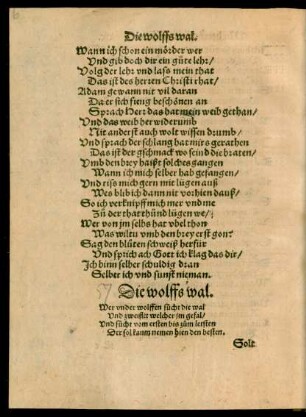 Die wolffs wal.
Wann ich schon ein mörder wer
Vnd gib doch dir ein gůte lehr/
Volg der lehr vnd laß mein that
Das ist des herren Christi rhat/
Adam gewann nit vil daran
Da er sich fieng beschönen an
Sprach Herr das hat mein weib gethan/
Vnd das weib her widerumb
Nit anderst auch wolt wissen drumb/
Vnd sprach der schlang hat mirs gerathen
Das ist der gschmack wo seind die braten/
Vmb den brey haißt solches gangen
Wann ich mich selber hab gefangen/
Vnd riß mich gern mit lügen auß
Wes blib ich dann nit vorhien dauß/
So ich verknipff mich mer vnd me
Zů der that thůnd lügen we/
Wer von jm selbs hat vbel thon
Was wiltu vmb den brey erst gon?
Sag den blůten schweiß herfür
Vnd sprich ach Gott ich klag das dir/
Ich binn selber schuldig dran
Selber ich vnd sunst nieman.
57 Die wolffs wal.
Wer vnder wolffen sücht die wal
Vnd zweiflet welcher jm gefal/
Vnd sücht vom ersten biß zům letsten
Der sol kaum nemen hien den besten.
Solt